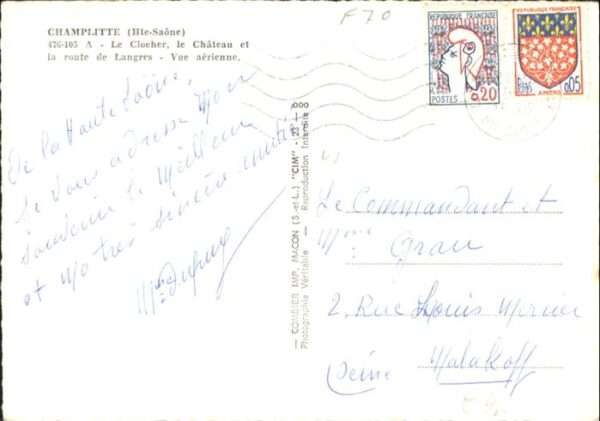 F 70
CHAMPLITTE (Hte-Saône)
476-105 A - Le Clocher, le Château et
la route de Langres - Vue aérienne.
De la Haute Saône,
je vous adresse Mon
Souvenir le Meilleur
et
très sincère
Mme Dupuy
— COMBIER IMP. MACON (S.-et-L.) "CIM" - 23
Photographie Véritable — Reproduction Interdite
REPUBLIQUE FRANÇAISE
POSTES
0.20
REPUBLIQUE FRANÇAISE
POSTES
AMIENS
0.05
Le Commandant et
Mme Grau
2, Rue Louis Mercier
Seine Malakoff